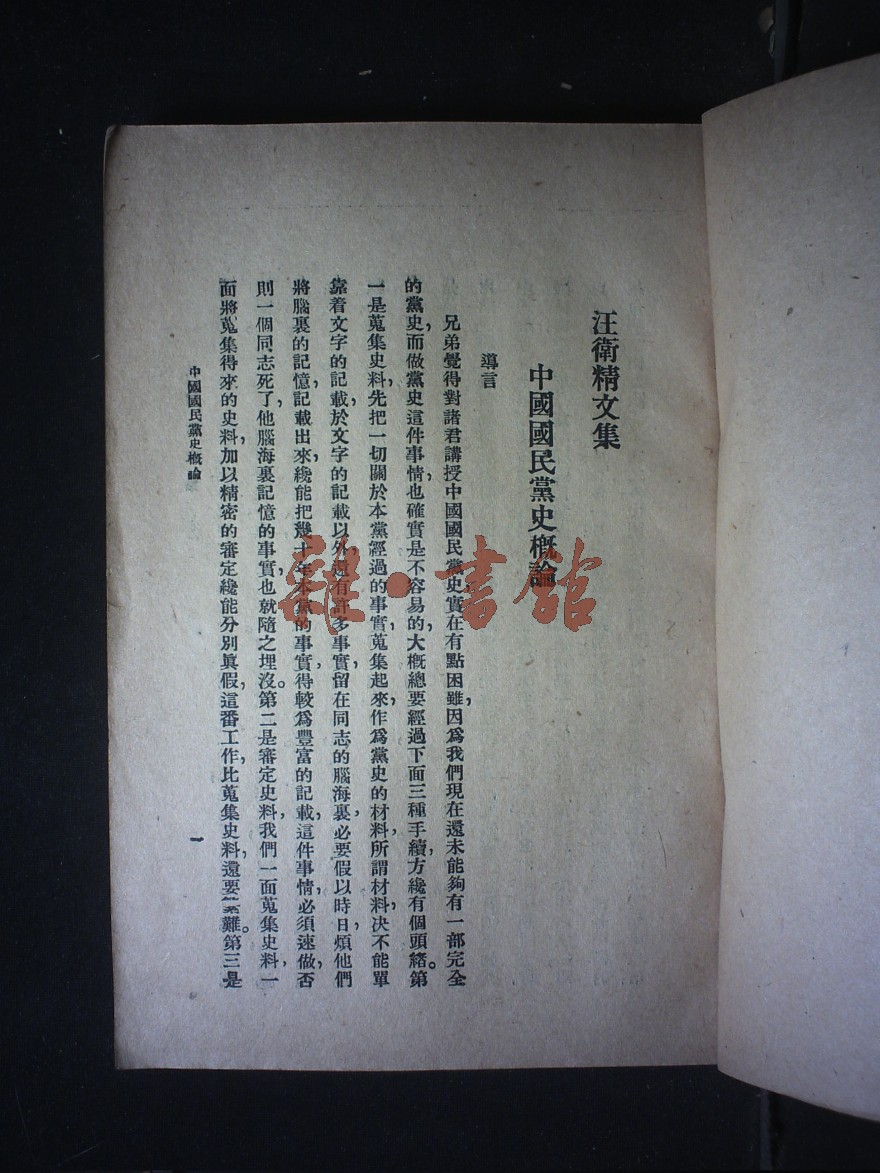 汪衞精文集
中國國民黨史槪論
導言
兄弟覺得對諸君講授中國國民黨史，實在有點困難，因爲我們現在還未能夠有一部完全
的黨史，而做黨史這件事情，也確實是不容易的，大槪總要經過下面三種手續，方纔有個頭緒。第
一是蒐集史料，先把一切關於本黨經過的事實，蒐集起來，作爲黨史的材料，所謂材料，決不能單
靠着文字的記載，於文字的記載以外，還有許多事實，留在同志的腦海裏，必要假以時日，煩他們
將腦裏的記憶，記載出來，纔能把幾十年本黨的事實，得較爲豐富的記載，這件事情，必須速做，否
則一個同志死了，他腦海裏記憶的事實，也就隨之埋沒。第二是審定史料，我們一面蒐集史料，一
面將蒐集得來的史料，加以精密的審定，纔能分別眞假，這番工作，比蒐集史料，還要繁難。第三是
中國國民黨史槪論
一
雜·書館